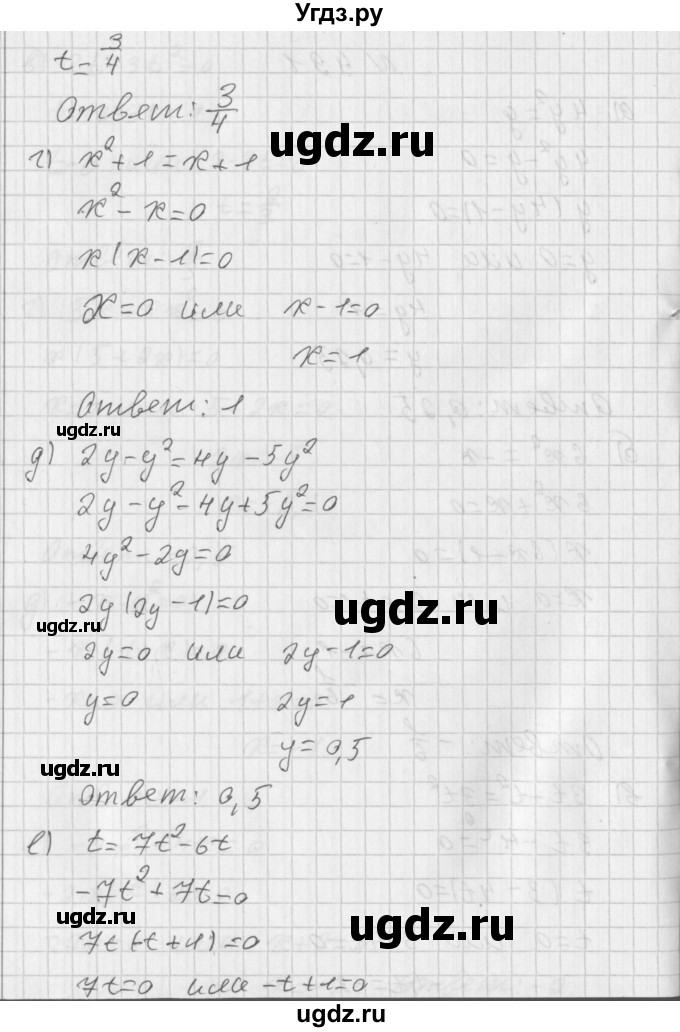 Угдз.ру
t = 3/4
Ответ: 3/4
udgz.ru
г) x² + 1 = x + 1
x² - x = 0
x(x - 1) = 0
x = 0 или x - 1 = 0
x = 1
Ответ: 1
udgz.ru
udgz.ru
д) 2y - y² = 4y - 5y²
2y - y² - 4y + 5y² = 0
4y² - 2y = 0
2y(2y - 1) = 0
udgz.ru
udgz.ru
2y = 0 или 2y - 1 = 0
y = 0 2y = 1
y = 0,5
udgz.ru
Ответ: 0,5
е) t = 7t² - 6t
-7t² + 7t = 0
udgz.ru
udgz.ru
7t(-t + 1) = 0
7t = 0 или -t + 1 = 0
udgz.ru